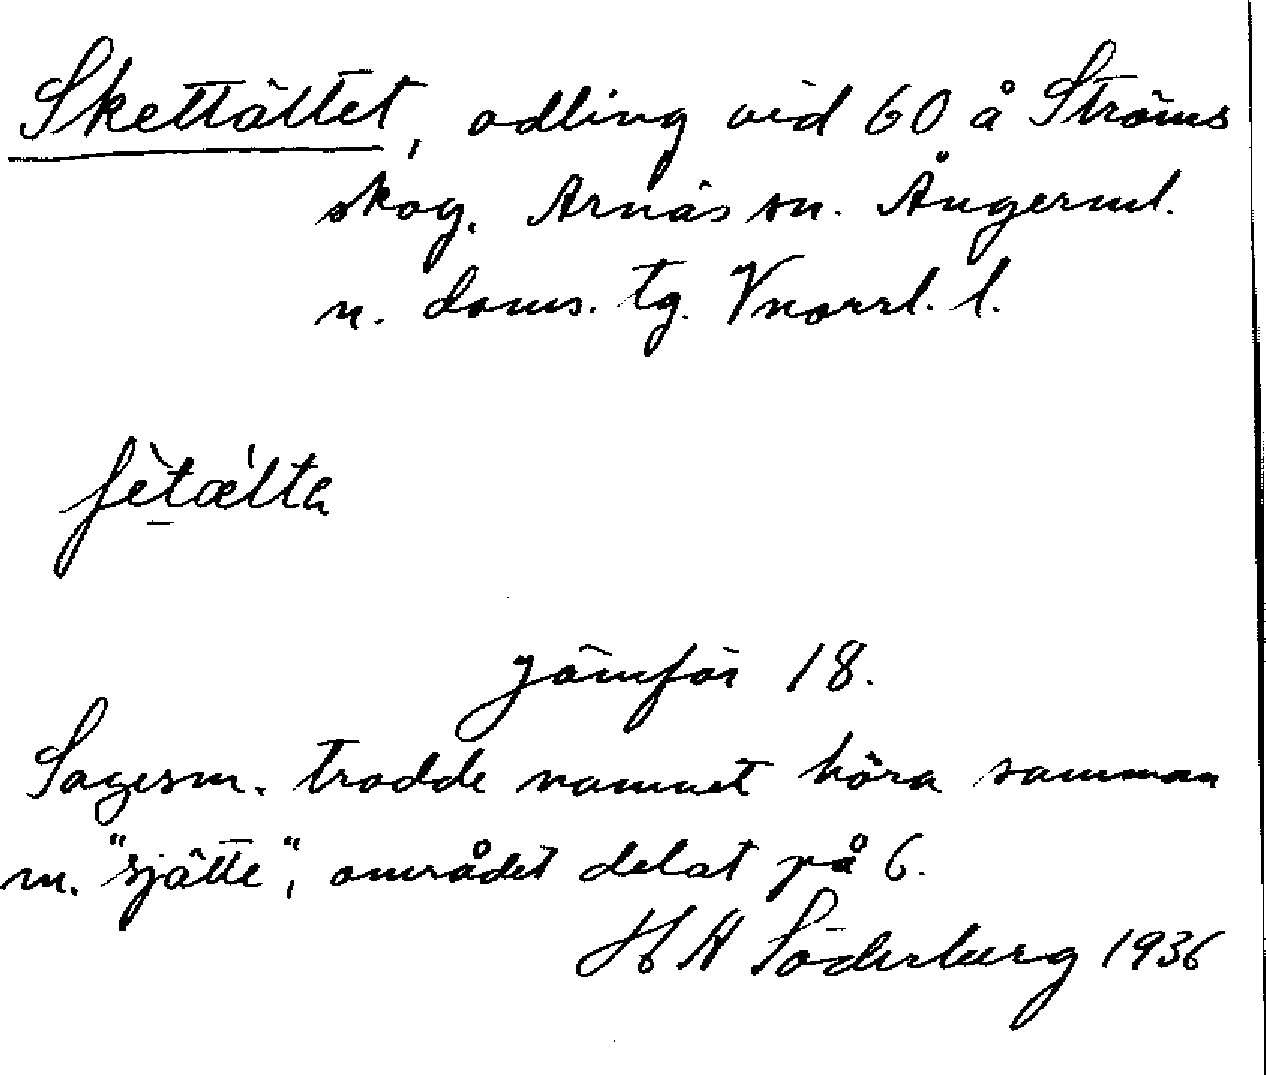 Skettättet, odling vid 60 å Ströms
skog. Arnäs sn. Ångerml.
n. doms. tg. Vnorrl. l.
ʃètæ̀lta
jämför 18.
Sagesm. trodde namnet höra samman
m. "sjätte", området delat på 6.
H H Söderberg 1936